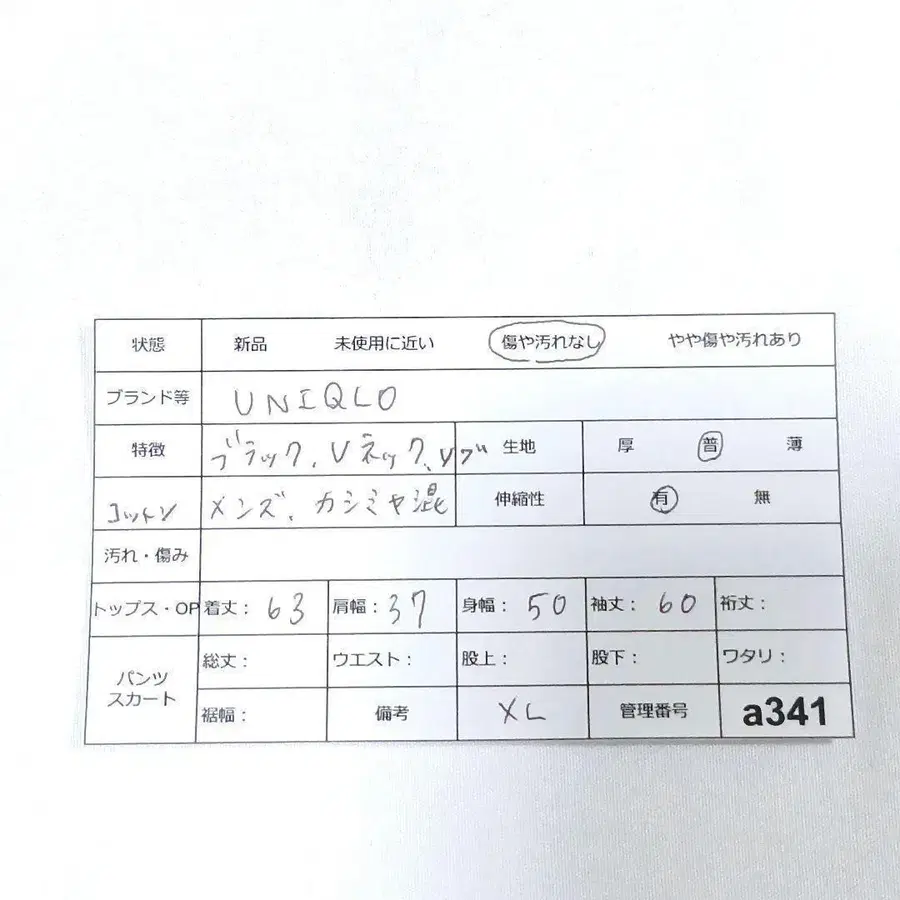 状態 新品 未使用に近い 傷や汚れなし やや傷や汚れあり
ブランド等 UNIQLO
特徴 ブラック、Vネック、リブ 生地 厚 普 薄
コットン メンズ、カシミヤ混 伸縮性 有 無
汚れ・傷み
トップス・OP 着丈： 63 肩幅：37 身幅： 50 袖丈： 60 裄丈：
パンツ スカート 総丈： ウエスト： 股上： 股下： ワタリ：
裾幅： 備考 XL 管理番号 a341